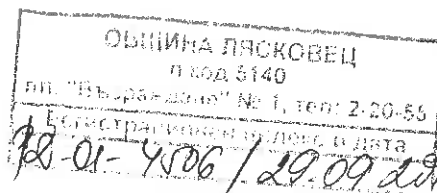 ОБЩИНА ЛЯСКОВЕЦ
п код 5140
пл. "Възраждане" № 1, тел: 2-20-55
Регистрационен индекс и дата
12-01-4506 / 29.09.20